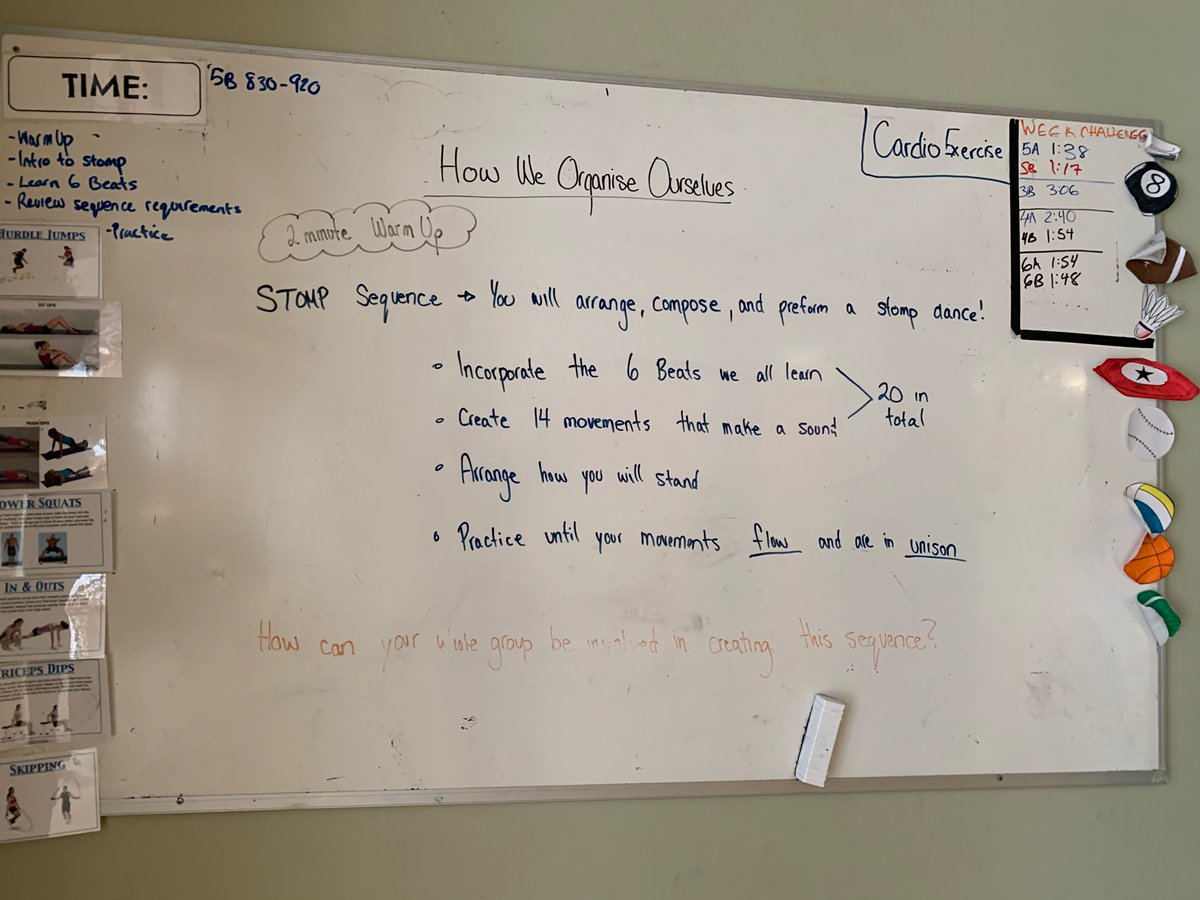 TIME:
5B 830-920
- Warm Up -
- Intro to stomp
- Learn 6 Beats
- Review sequence requirements
- Practice
How We Organise Ourselves
2 minute Warm Up
STOMP Sequence → You will arrange, compose, and preform a stomp dance!
Incorporate the 6 Beats we all learn
Create 14 movements that make a sound
20 in
total
Arrange how you will stand
Practice until your movements flow and are in unison
How can your whole group be involved in creating this sequence?
Cardio Exercise
WEEK CHALLENGE
5A 1:38
5B 1:17
3B 306
4A 2:40
4B 1:54
6A 1:54
6B 1:48
8
HURDLE JUMPS
SIT UPS
PUSH UPS
OWER SQUATS
IN & OUTS
RICEPS DIPS
SKIPPING